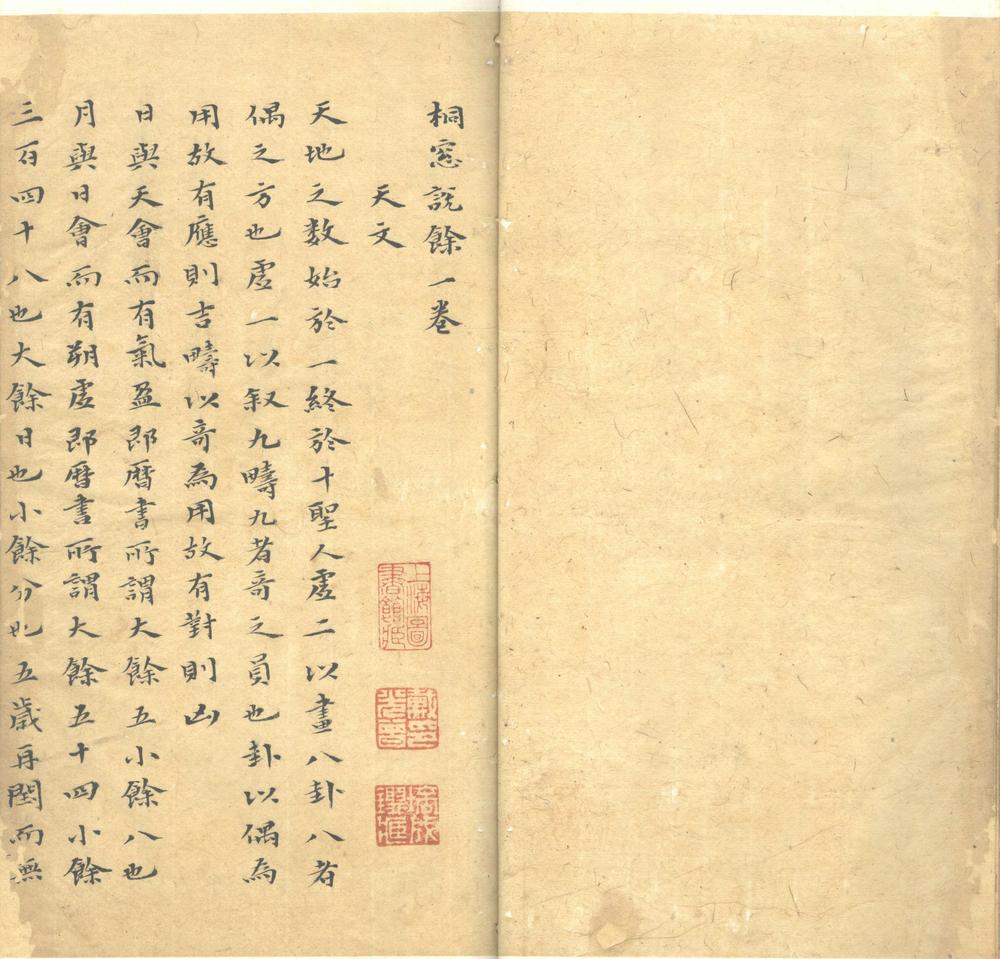 桐窓説餘一卷
天文
天地之数始於一終於十聖人虛二以畫八卦八者
偶之方也虛一以叙九疇九者竒之員也卦以偶為
用故有應則吉疇以竒為用故有對則凶
日與天會而有氣盈即曆書所謂大餘五小餘八也
月與日會而有朔虛即曆書所謂大餘五十四小餘
三百四十八也大餘日也小餘分也五歲再閏而無
上海圖書館藏